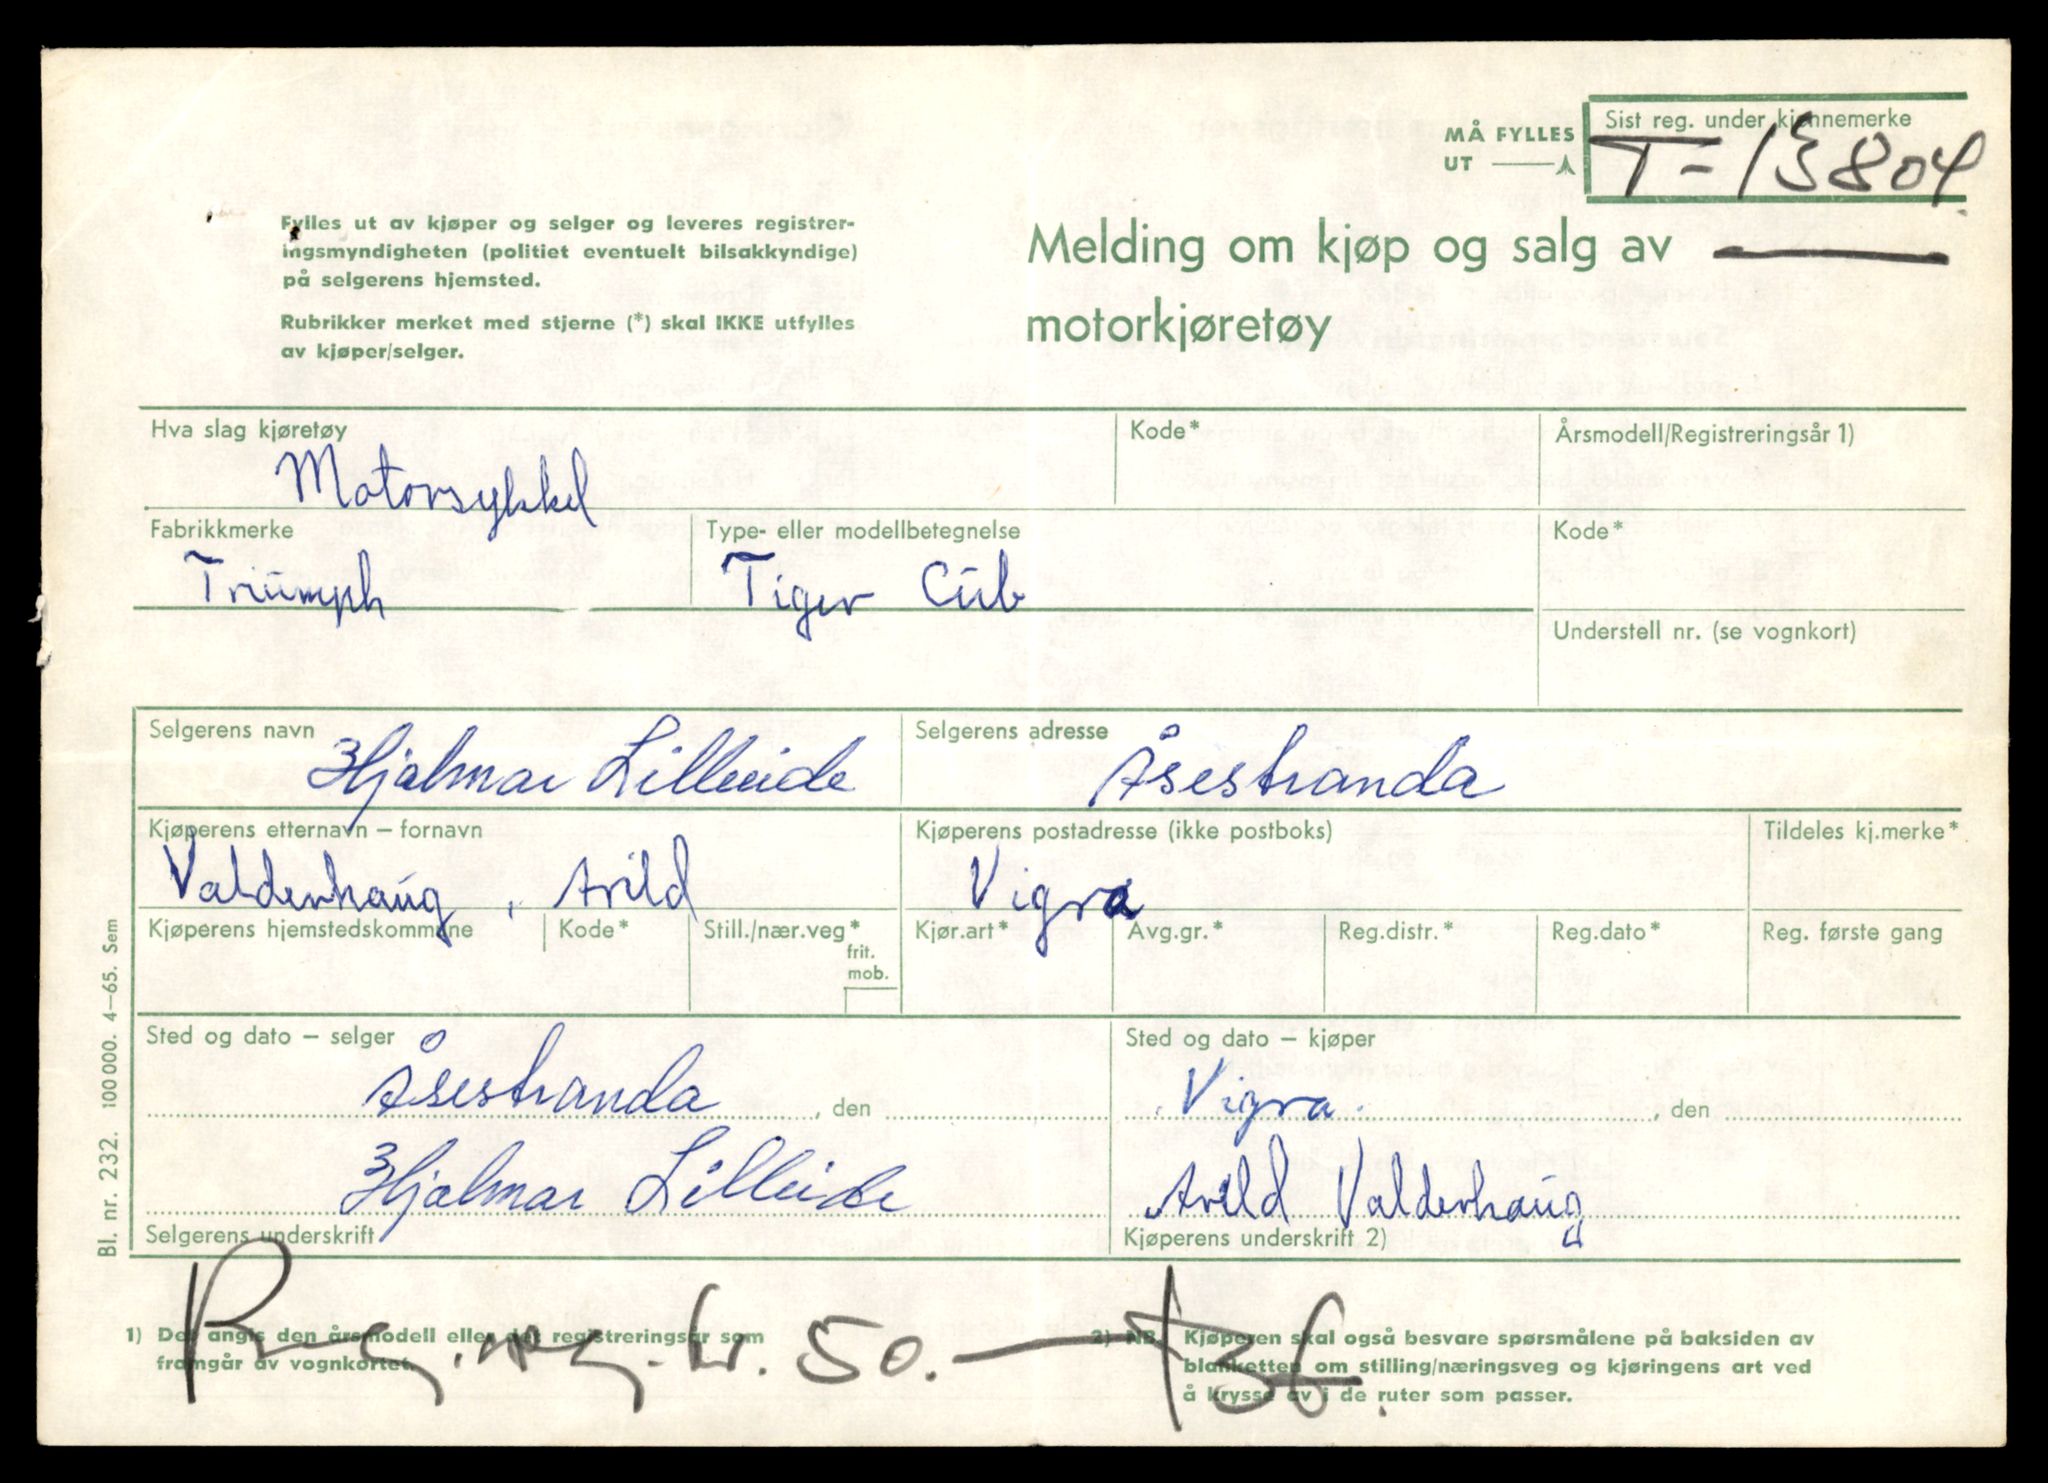 MÅ FYLLES UT
Sist reg. under kjennemerke
T-13804
Fylles ut av kjøper og selger og leveres registrer-
ingsmyndigheten (politiet eventuelt bilsakkyndige)
på selgerens hjemsted.
Rubrikker merket med stjerne (*) skal IKKE utfylles
av kjøper/selger.
Melding om kjøp og salg av
motorkjøretøy
Hva slag kjøretøy
Kode*
Årsmodell/Registreringsår 1)
Motorsykkel
Fabrikkmerke
Type- eller modellbetegnelse
Kode*
Triumph
Tiger Cub
Understell nr. (se vognkort)
Selgerens navn
Selgerens adresse
Hjalmar Lilleeide
Åsestranda
Kjøperens etternavn – fornavn
Kjøperens postadresse (ikke postboks)
Tildeles kj.merke*
Valderhaug, Arild
Vigra
Kjøperens hjemstedskommune
Kode*
Still./nær.veg*
frit.
mob.
Kjør.art*
Avg.gr.*
Reg.distr.*
Reg.dato*
Reg. første gang
Sted og dato – selger
Sted og dato – kjøper
Åsestranda, den
Vigra, den
Hjalmar Lilleeide
Arild Valderhaug
Selgerens underskrift
Kjøperens underskrift 2)
kr. 50.—
1) Det angis den årsmodell eller det registreringsår som
framgår av vognkortet.
2) NB. Kjøperen skal også besvare spørsmålene på baksiden av
blanketten om stilling/næringsveg og kjøringens art ved
å krysse av i de ruter som passer.
Bl. nr. 232. 100 000. 4–65. Sem